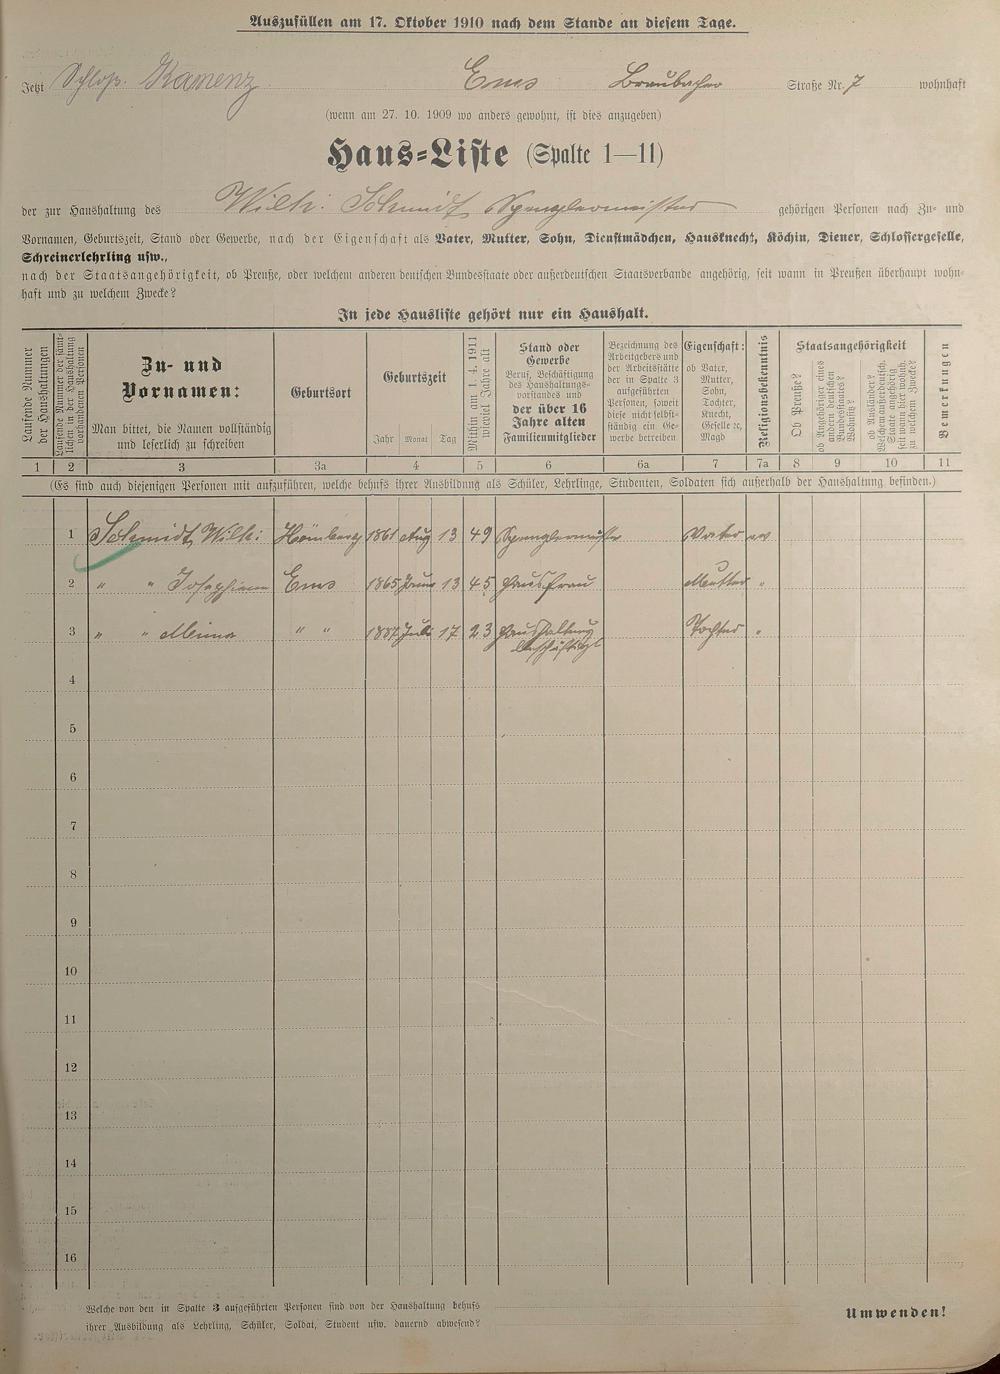 Auszufüllen am 17. Oktober 1910 nach dem Stande an diesem Tage.
Jetzt Schloß Kamenz Ems Braubacher Straße Nr. 7 wohnhaft
(wenn am 27. 10. 1909 wo anders gewohnt, ist dies anzugeben)
Haus-Liste (Spalte 1—11)
der zur Haushaltung des Wilh: Schmidt Spenglermeister gehörigen Personen nach Zu- und
Vornamen, Geburtszeit, Stand oder Gewerbe, nach der Eigenschaft als Vater, Mutter, Sohn, Dienstmädchen, Hausknecht, Köchin, Diener, Schlossergeselle,
Schreinerlehrling usw.,
nach der Staatsangehörigkeit, ob Preuße, oder welchem anderen deutschen Bundesstaate oder außerdeutschen Staatsverbande angehörig, seit wann in Preußen überhaupt wohn-
haft und zu welchem Zwecke?
In jede Hausliste gehört nur ein Haushalt.
Laufende Nummer der Haushaltungen
Laufende Nummer der sämt-
lichen in der Haushaltung
vorhandenen Personen
Zu- und
Vornamen:
Man bittet, die Namen vollständig
und leserlich zu schreiben
Geburtsort
Geburtszeit
Jahr Monat Tag
Mithin am 1. 4. 1911
wieviel Jahre alt
Stand oder
Gewerbe
Beruf, Beschäftigung
des Haushaltungs-
vorstandes und
der über 16
Jahre alten
Familienmitglieder
Bezeichnung des
Arbeitgebers und
der Arbeitsstätte
der in Spalte 3
aufgeführten
Personen, soweit
diese nicht selbst-
ständig ein Ge-
werbe betreiben
Eigenschaft:
ob Vater,
Mutter,
Sohn,
Tochter,
Knecht,
Geselle ec,
Magd
Religionsbekenntnis
Staatsangehörigkeit
Ob Preuße?
ob Angehöriger eines
andern deutschen
Bundesstaates?
Wohnsitz?
ob Ausländer?
Welchem außerdeutsch.
Staate angehörig
seit wann hier wohnh.
zu welchem Zwecke?
Bemerkungen
1 2 3 3a 4 5 6 6a 7 7a 8 9 10 11
(Es sind auch diejenigen Personen mit aufzuführen, welche behufs ihrer Ausbildung als Schüler, Lehrlinge, Studenten, Soldaten sich außerhalb der Haushaltung befinden.)
1 Schmidt Wilh: Hömberg 1861 Aug 13 49 Spenglermeister Vater ev
2 " " Josephiene Ems 1865 Juni 13 45 Hausfrau Mutter "
3 " " Minna " " 1887 Juli 17 23 Haushaltung Tochter "
beschäftigt
4
5
6
7
8
9
10
11
12
13
14
15
16
Welche von den in Spalte 3 aufgeführten Personen sind von der Haushaltung behufs
ihrer Ausbildung als Lehrling, Schüler, Soldat, Student usw. dauernd abwesend?
Umwenden!